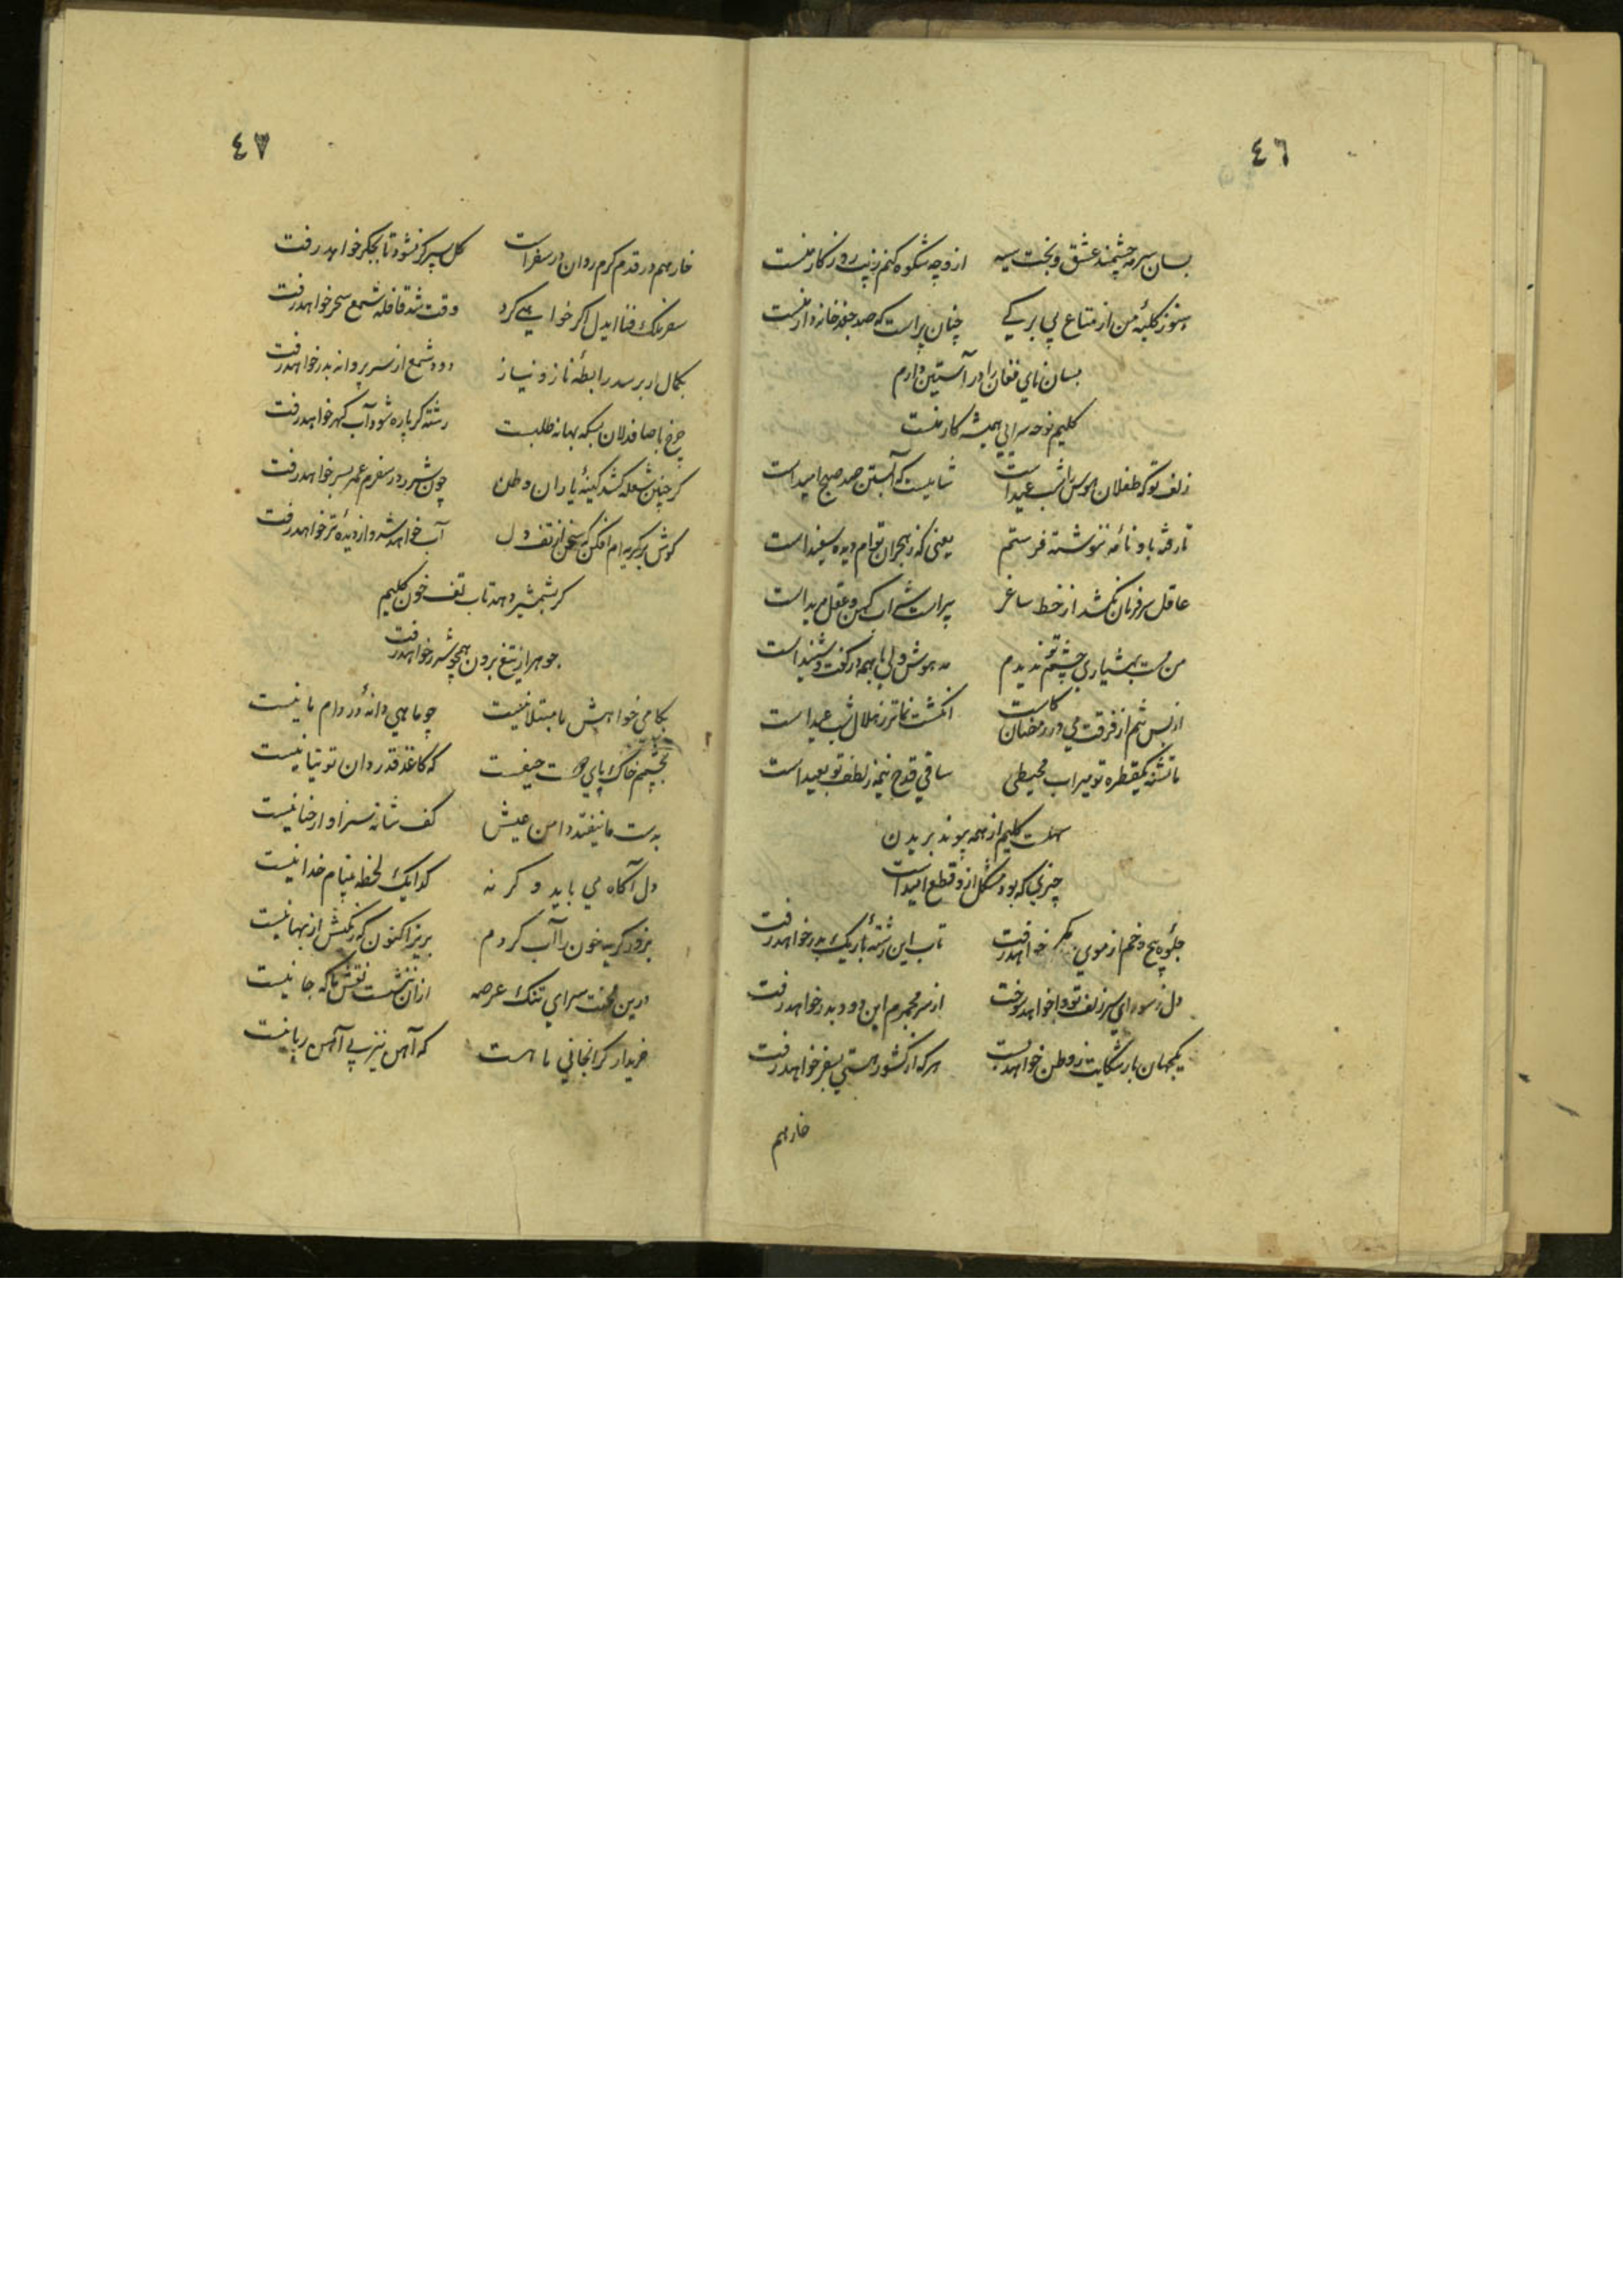 ٤٦
بسان سرمه چشمند عشق و بخت سیه ازو چه شکوه کنم زینت روزکار منست
هنوز کلبهٔ من از متاع بی برکی چنان پر است که صد جغد خانه دار منست
بسان نای فغان را در آستین دارم
کلیم نوحه سرایی همیشه کار منست
زلف تو که طفلان هوس را شب عید است شامیست که آبستن صد صبح امید است
تا رفته با و نامه ننوشته فرستم یعنی که ز هجران توام دیده سفید است
عاقل سر فرمان نکشد از خط ساغر پیر است شراب کهن و عقل مرید است
من مست بهشیاری چشم تو ندیدم مدهوش ولی با همه در گفت و شنید است
از بس تنم از فرقت می در رمضان کاست انکشت نماتر ز هلال شب عید است
ما تشنه یکقطره تو سیراب محیطی ساقی قدح نیمه ز لطف تو بعید است
سهلست کلیم از همه پیوند بریدن
چیزیکه بود مشکل ازو قطع امید است
جلوه پیچ و خم از موی کمر خواهد رفت تاب این رشتهٔ باریک بدر خواهد رفت
دل ز سودای سر زلف تو وا خواهد سوخت از سر مجمرم این دود بدر خواهد رفت
یکجهان بار شکایت ز وطن خواهد بست هر که از کشور هستی بسفر خواهد رفت
خار هم
٤٧
خار هم در قدم کرم روان در سفر است کل سپر کر نشود تا بجکر خواهد رفت
سفر ملک فنا ایدل اکر خواهی کرد وقت شد قافله شمع سحر خواهد رفت
بکمال ار برسد رابطهٔ ناز و نیاز دود شمع از سر پروانه بدر خواهد رفت
چرخ با صافدلان بسکه بهانه طلبست رشته کر پاره شود آب کهر خواهد رفت
کر چنین شعله کشد کینهٔ یاران وطن چون شرر در سفرم عمر بسر خواهد رفت
کوش بر کریه ام افکن که سخن از تف دل آب خواهد شد و از دیدهٔ تر خواهد رفت
کر بشمشیر دهد تاب تف خون کلیم
جوهر از تیغ برون همچو شرر خواهد رفت
بکامی خواهش ما مبتلا نیست چو ماهی دانهٔ در دام ما نیست
بچشمم خاک پای دوست حیفست که کاغذ قدردان توتیا نیست
بدست ما نیفتد دامن عیش کف شانه سزاوار حنا نیست
دل آکاه می باید وکرنه کدا یک لحظه بینام خدا نیست
بزور کریه خون را آب کردم بریز اکنون که رنکش از بها نیست
درین محنت سرای تنک عرصه از آن ننشست نقش ما که جا نیست
خریدار کرانجانی ما هست که آهن نیز بی آهن ربا نیست